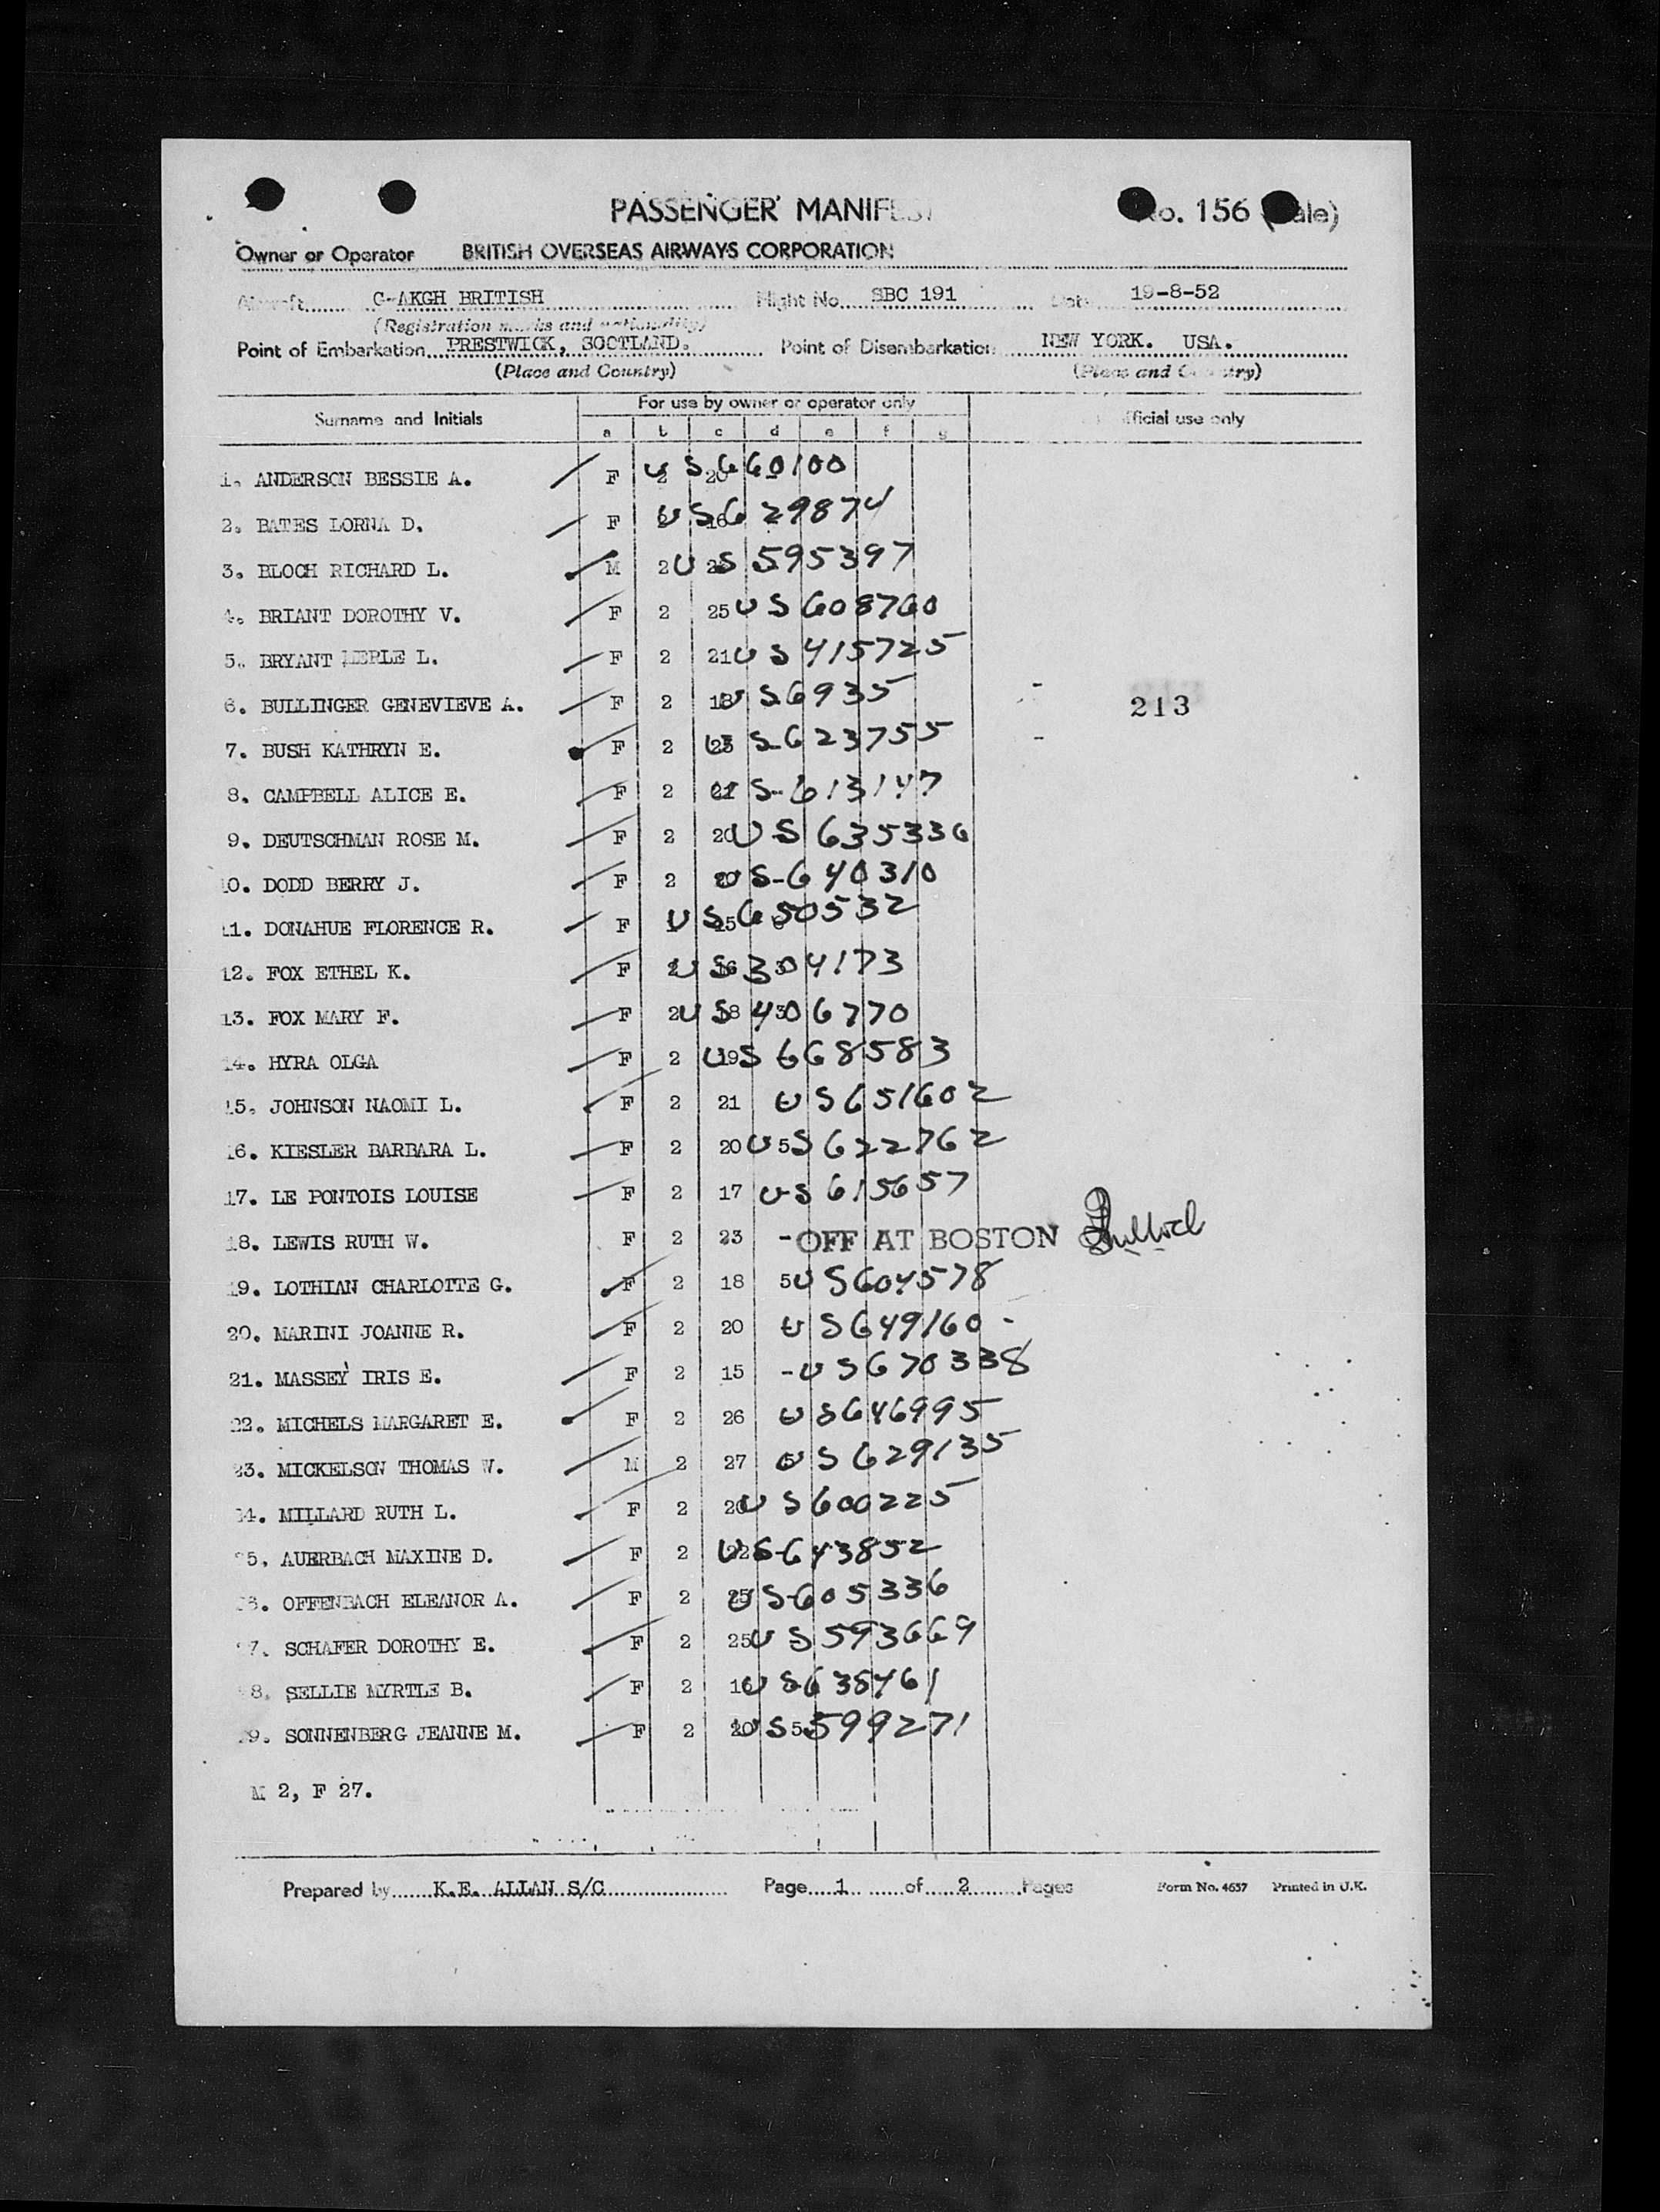 PASSENGER MANIFEST No. 156 (Sale)
Owner or Operator BRITISH OVERSEAS AIRWAYS CORPORATION
Aircraft G-AKGH BRITISH Flight No. SBC 191 Date 19-8-52
(Registration marks and nationality)
Point of Embarkation PRESTWICK, SCOTLAND. Point of Disembarkation NEW YORK. USA.
(Place and Country) (Place and Country)
For use by owner or operator only
Surname and Initials official use only
a b c d e f g
1. ANDERSON BESSIE A. F 2 US 660100
2. BATES LORNA D. F US 629874
3. BLOCH RICHARD L. M 2 US 595397
4. BRIANT DOROTHY V. F 2 25 US 608760
5. BRYANT MERLE L. F 2 21 US 415725
6. BULLINGER GENEVIEVE A. F 2 18 US 6935 213
7. BUSH KATHRYN E. F 2 23 US 623755
8. CAMPBELL ALICE E. F 2 21 US 613147
9. DEUTSCHMAN ROSE M. F 2 20 US 635336
10. DODD BERRY J. F 2 US 640310
11. DONAHUE FLORENCE R. F US 650532
12. FOX ETHEL K. F 2 US 304173
13. FOX MARY F. F 2 18 US 406770
14. HYRA OLGA F 2 19 US 668583
15. JOHNSON NAOMI L. F 2 21 US 651602
16. KIESLER BARBARA L. F 2 20 5 US 622762
17. LE PONTOIS LOUISE F 2 17 US 615657
18. LEWIS RUTH W. F 2 23 - OFF AT BOSTON
19. LOTHIAN CHARLOTTE G. F 2 18 5 US 604578
20. MARINI JOANNE R. F 2 20 US 649160
21. MASSEY IRIS E. F 2 15 - US 670338
22. MICHELS MARGARET E. F 2 26 US 646995
23. MICKELSON THOMAS W. M 2 27 US 629135
24. MILLARD RUTH L. F 2 20 US 600225
25. AUERBACH MAXINE D. F 2 22 US 643852
26. OFFENBACH ELEANOR A. F 2 25 US 605336
27. SCHAFER DOROTHY E. F 2 25 US 593669
28. SELLIE MYRTLE B. F 2 US 635461
29. SONNENBERG JEANNE M. F 2 20 5 US 599271
M 2, F 27.
Prepared by K.E. ALLAN S/C Page 1 of 2 Pages Form No. 4657 Printed in U.K.